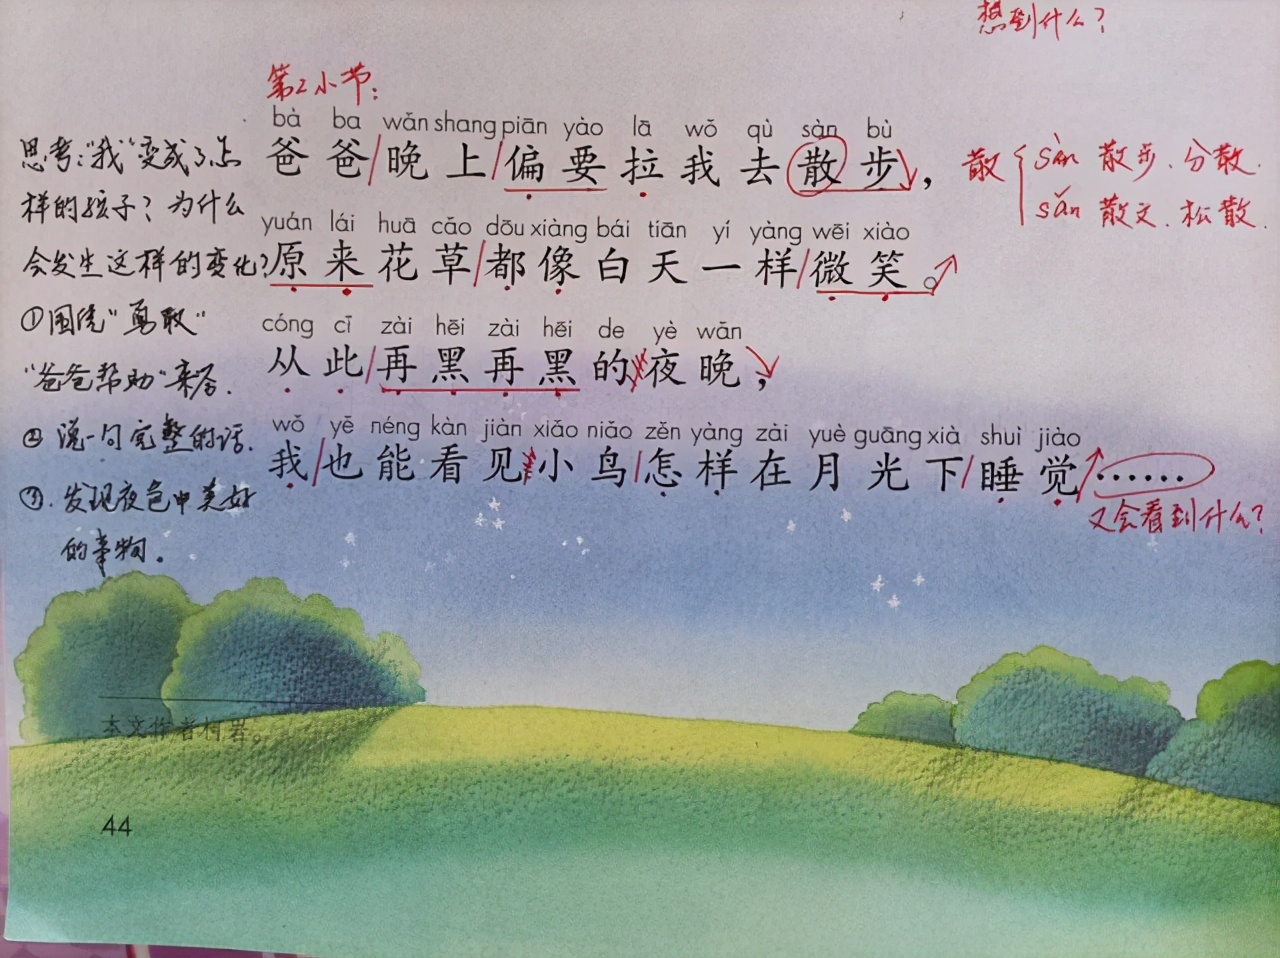 想到什么？
第2小节：
bà ba wǎn shang piān yào lā wǒ qù sàn bù
爸爸/晚上/偏要拉我去散步，
散{sàn 散步、分散.
sǎn 散文、松散.
yuán lái huā cǎo dōu xiàng bái tiān yí yàng wēi xiào
原来花草/都像白天一样/微笑。
cóng cǐ zài hēi zài hēi de yè wǎn
从此/再黑再黑的夜晚，
wǒ yě néng kàn jiàn xiǎo niǎo zěn yàng zài yuè guāng xià shuì jiào
我/也能看见小鸟/怎样在月光下/睡觉……
又会看到什么？
思考："我"变成了怎
样的孩子？为什么
会发生这样的变化？
①围绕"勇敢"
"爸爸帮助"来答.
②说一句完整的话.
③.发现夜色中美好
的事物。
本文作者柯岩。
44